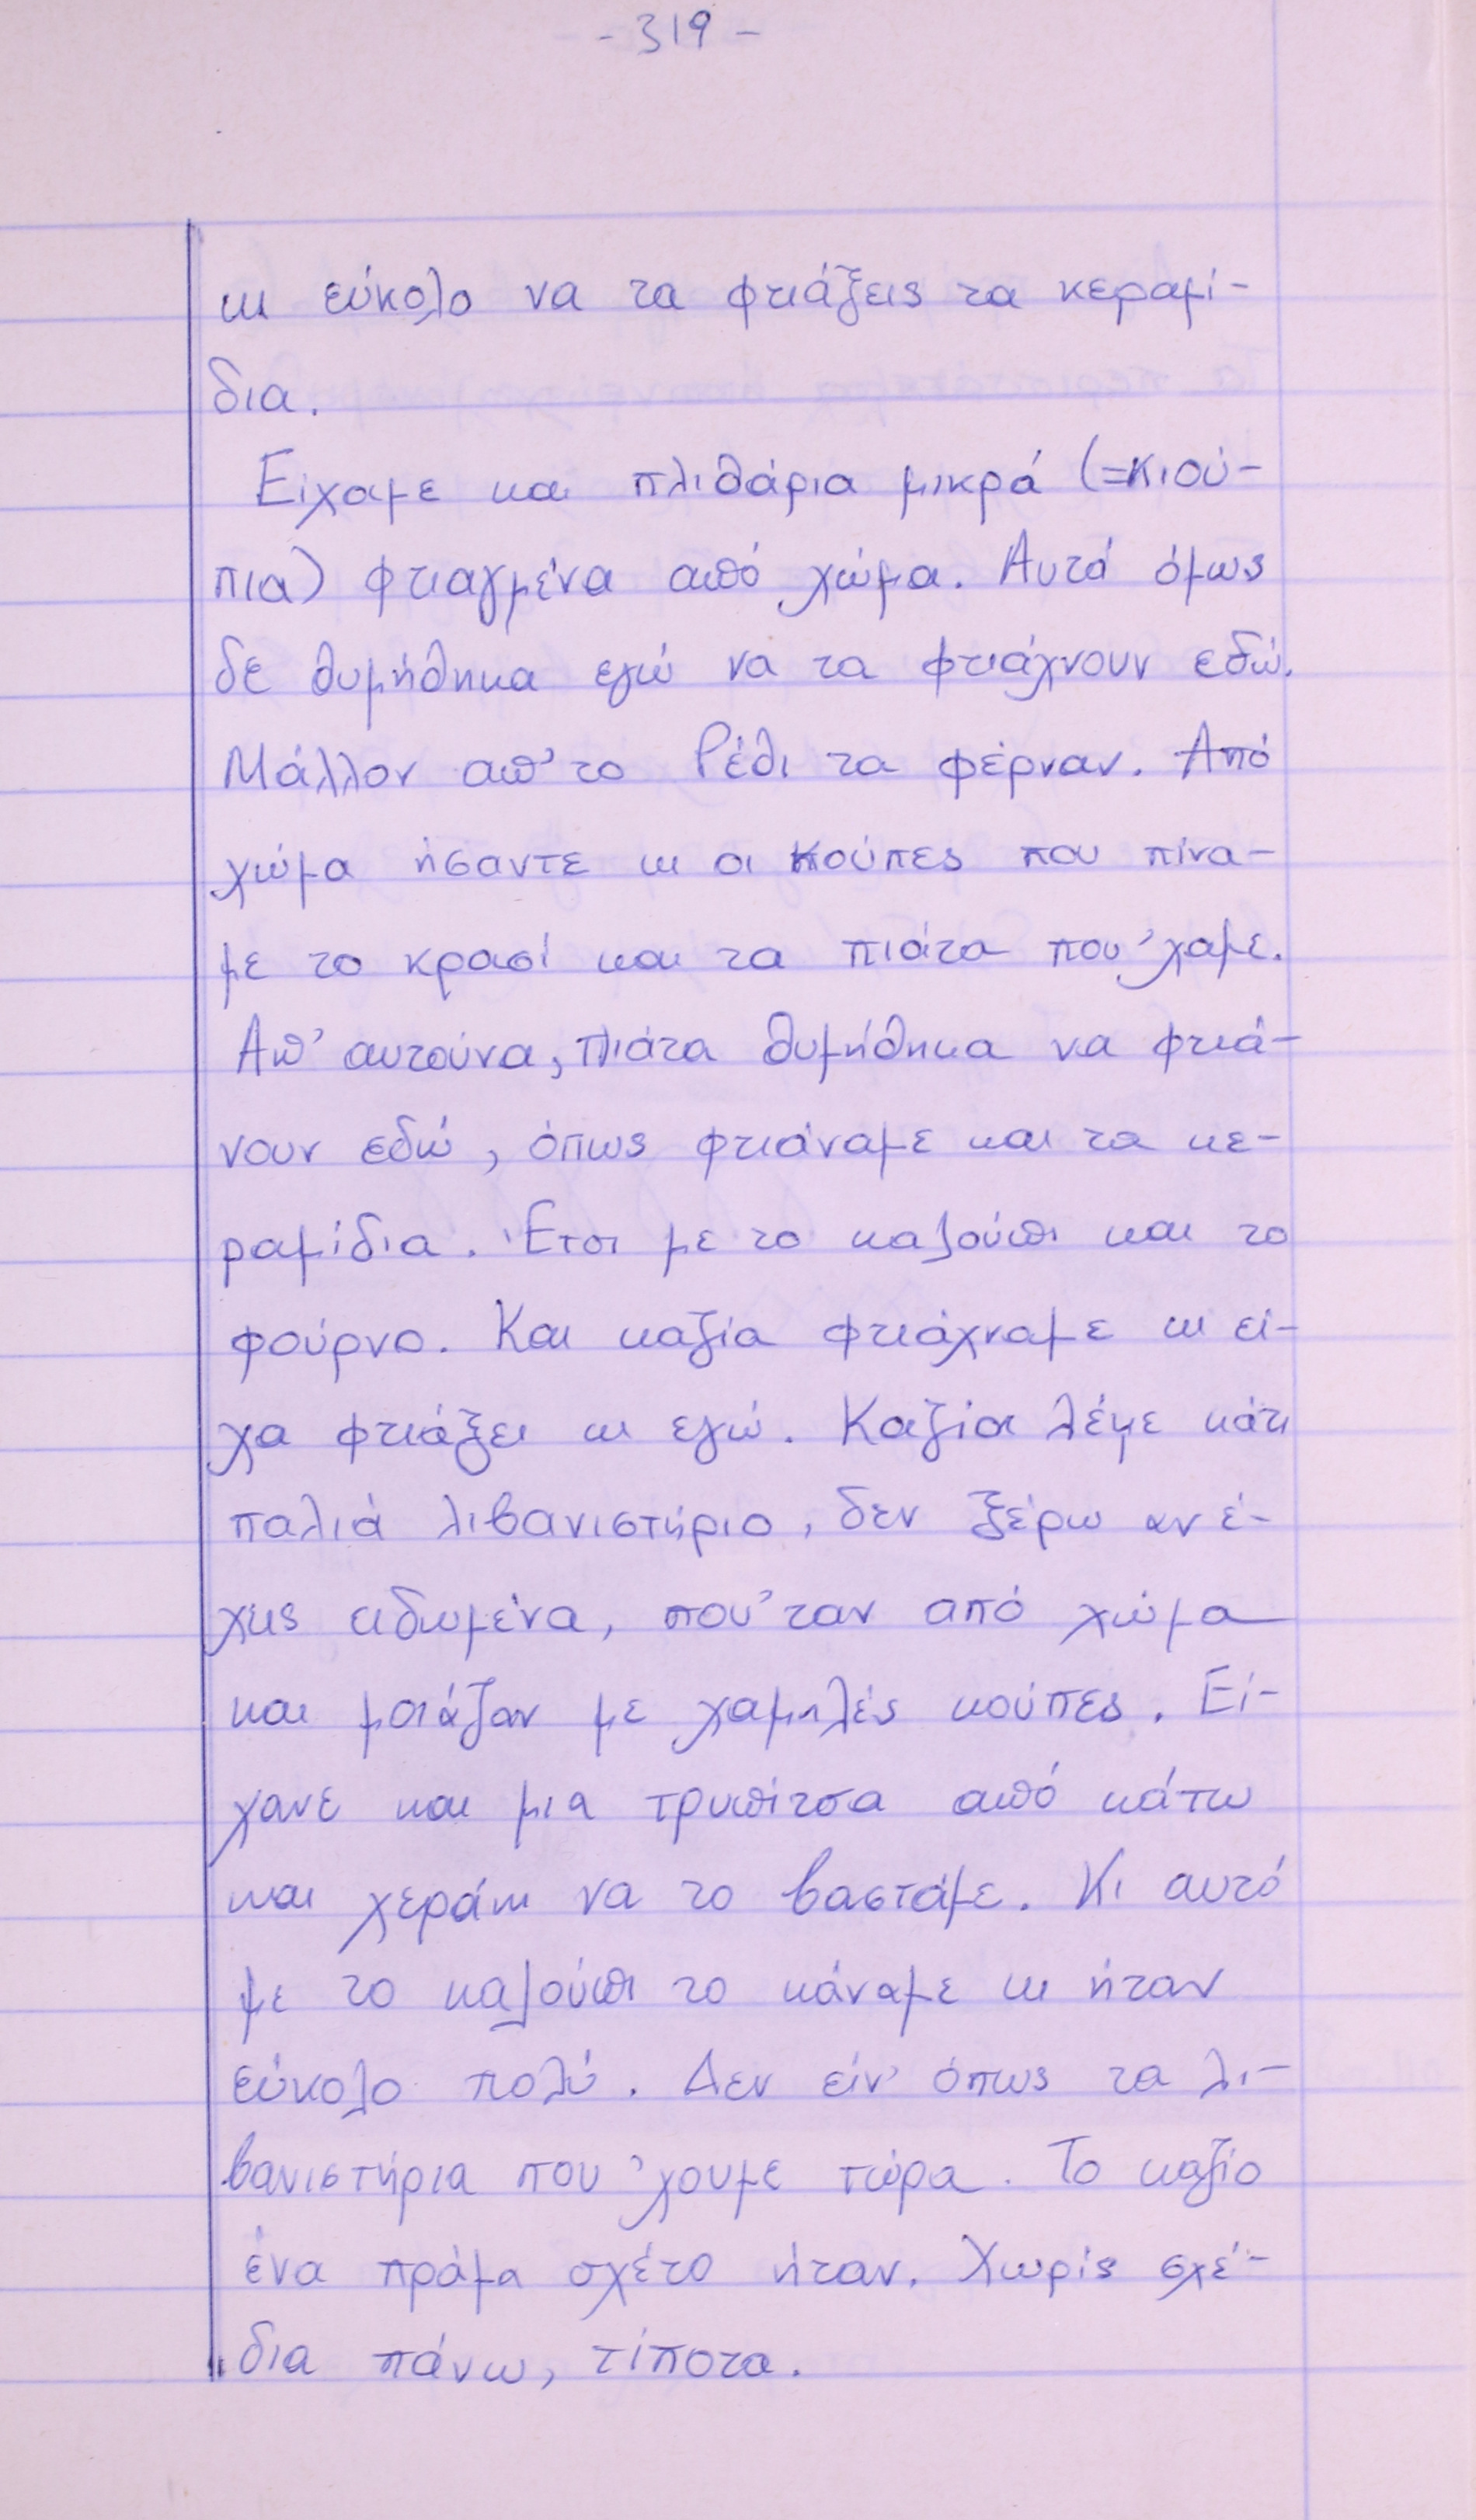 - 319 -
κι εύκολο να τα φτιάξεις τα κεραμί-
δια.
Είχαμε και πλιθάρια μικρά (=κιού-
πια) φτιαγμένα από χώμα. Αυτά όμως
δε θυμήθηκα εγώ να τα φτιάχνουν εδώ.
Μάλλον απ' το Ρέθι τα φέρναν. Από
χώμα ήσαντε κι οι κούπες που πίνα-
με το κρασί και τα πιάτα που 'χαμε.
Απ' αυτούνα, πιάτα θυμήθηκα να φτιά-
νουν εδώ, όπως φτιάναμε και τα κε-
ραμίδια. Έτσι με το καλούπι και το
φούρνο. Και καζία φτιάχναμε κι εί-
χα φτιάξει κι εγώ. Καζία λέμε κάτι
παλιά λιβανιστήριο, δεν ξέρω αν έ-
χεις ειδωμένα, που 'ταν από χώμα
και μοιάζαν με χαμηλές κούπες. Εί-
χανε και μια τρυπίτσα από κάτω
και χεράκι να το βαστάμε. Κι αυτό
με το καλούπι το κάναμε κι ήταν
εύκολο πολύ. Δεν είν' όπως τα λι-
βανιστήρια που 'χουμε τώρα. Το καζίο
ένα πράμα σχέτο ήταν. Χωρίς σχέ-
δια πάνω, τίποτα.